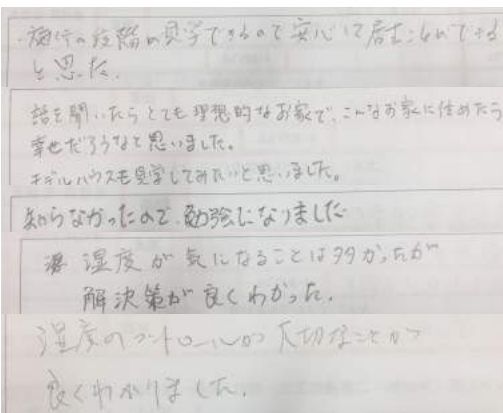 ・施行の段階の見学できるので安心して居むことができる
と思った。
話を聞いたらとても理想的なお家で、こんなお家に住めたら
幸せだろうなと思いました。
モデルハウスも見学してみたいと思いました。
知らなかったので、勉強になりました
湿度が気になることは多かったが
解決策が良くわかった。
湿度のコントロールが大切なことが
良くわかりました。